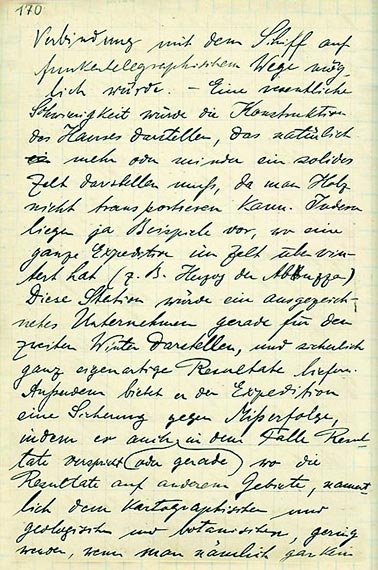 170
Verbindung mit dem Schiff auf
funkentelegraphischem Wege mög-
lich würde. – Eine wesentliche
Schwierigkeit würde die Konstruktion
des Hauses darstellen, das natürlich
mehr oder minder ein solides
Zelt darstellen muß, da man Holz
nicht transportieren kann. Indessen
liegen ja Beispiele vor, wo eine
ganze Expedition im Zelt überwin-
tert hat (z. B. Herzog der Abruzzen)
Diese Station würde ein ausgezeich-
netes Unternehmen gerade für den
zweiten Winter darstellen, und sicherlich
ganz eigenartige Resultate liefern.
Außerdem bietet er der Expedition
eine Sicherung gegen Mißerfolge,
indem er auch in dem Falle Resul-
tate verspricht (oder gerade) wo die
Resultate auf anderem Gebiete, nament-
lich dem kartographischen und
geologischen und botanischen, gering
werden, wenn man nämlich gar kein